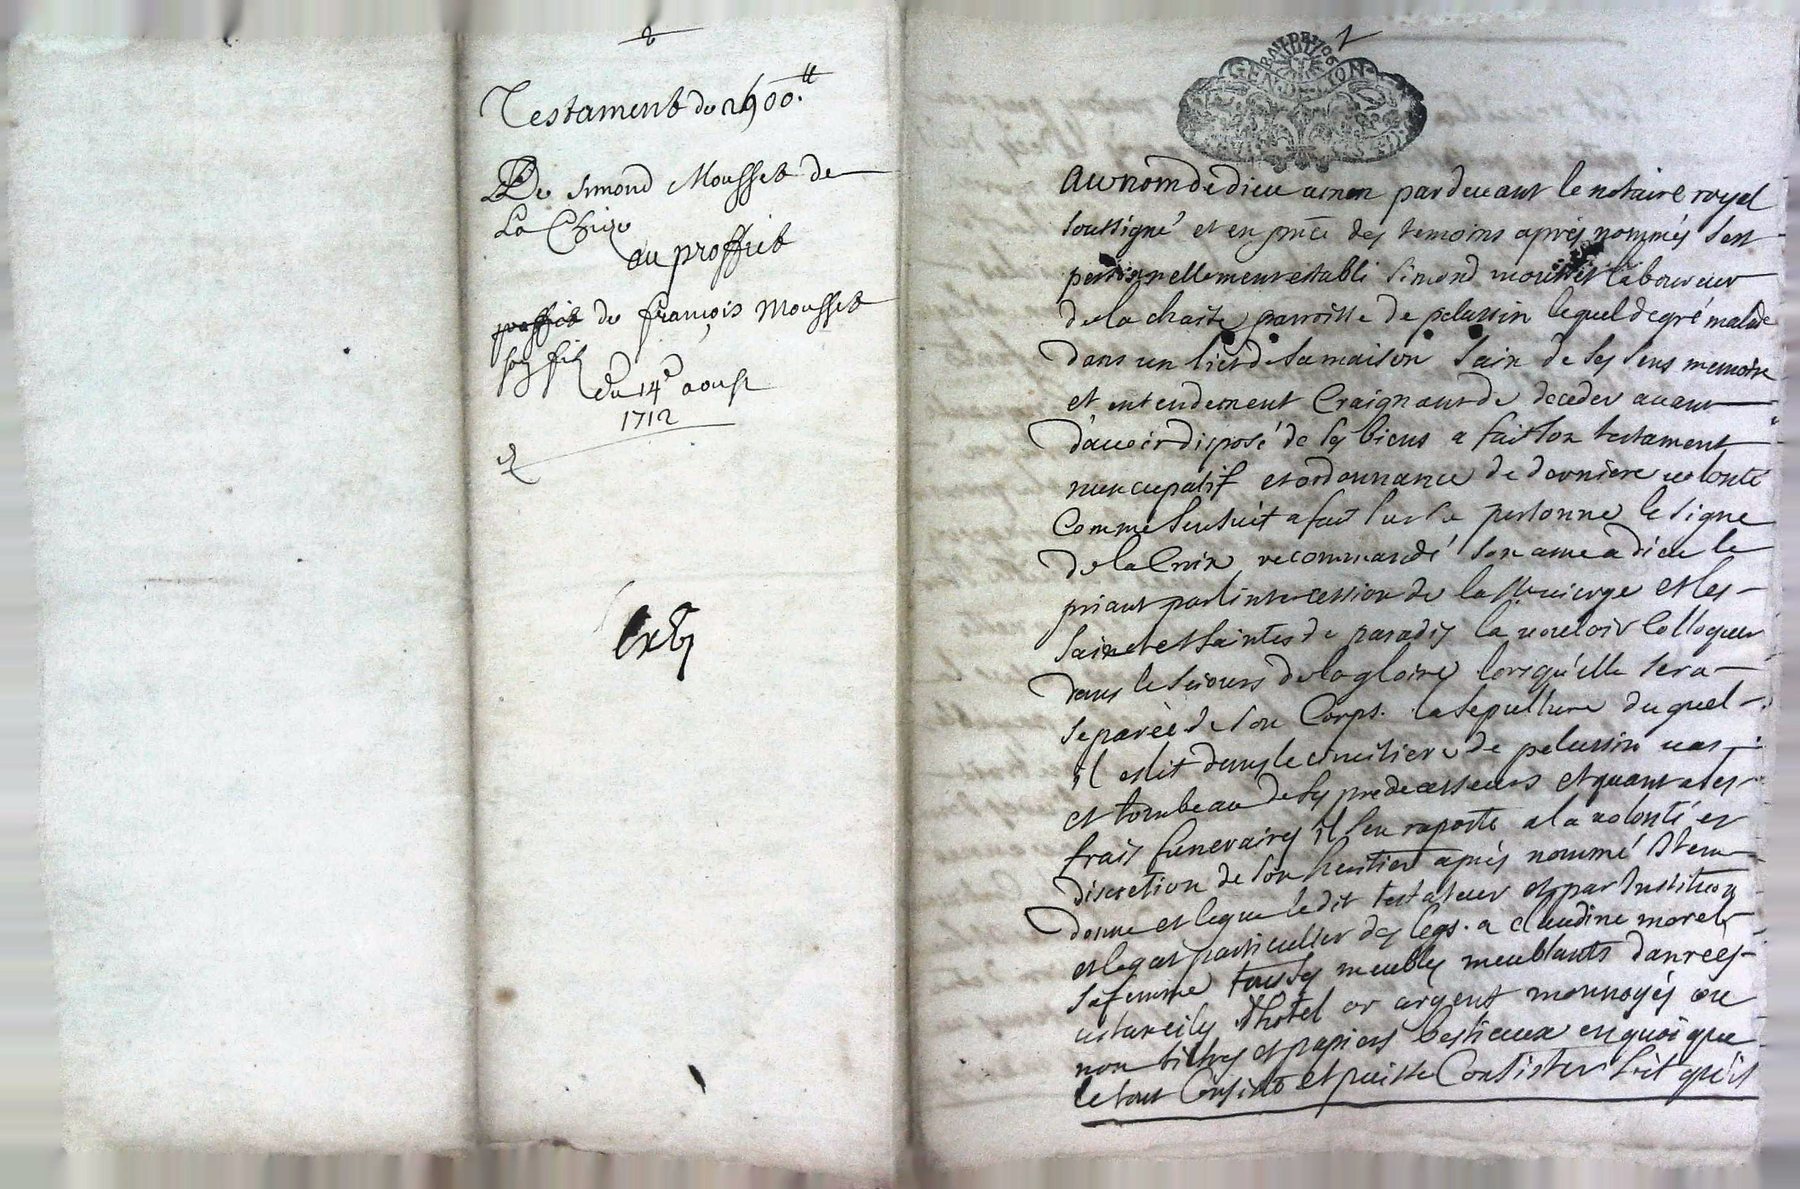 Testament de 2900ᵗᵗ
De Simond Mousset de
La Chize
au proffict
proffict de françois Mousset
son fils
du 14ᵉ aoust
1712
1
BAIL DE 1706
GEN DE LION
au nom de dieu amen par devant le notaire royal
soussigné et en pnce des temoins après nommés s'est
personnellement establi Simond mousset laboureur
de la chaize parroisse de pelussin lequel degré malade
dans un lict de sa maison sain de ses sens memoire
et entendement craignant de deceder avant
d'avoir disposé de ses biens a fait son testament
nuncupatif et ordonnance de derniere volonté
comme s'ensuit a fait sur sa personne le signe
de la Croix recommandé son ame a dieu le
priant par l'intercession de la Ste vierge et les
saincts et saintes de paradis la vouloir colloquer
dans le sejours de la gloire lorsqu'elle sera
separée de son Corps. la sepulture duquel
il eslit dans le cimetiere de pelussin
et tombeau de ses predecesseurs et quant a ses
frais funeraires il s'en raporte a la volonté et
discretion de son heritier après nommé Item
donne et legue ledit testateur et par Institution
et legat particullier des legs. a claudine morel
sa femme tous ses meubles meublants danrees
ustanciles d'hotel or argent monnoyés ou
non tiltres et papiers bestieaux en quoi que
le tout Consiste et puisse Consister soit qu'il